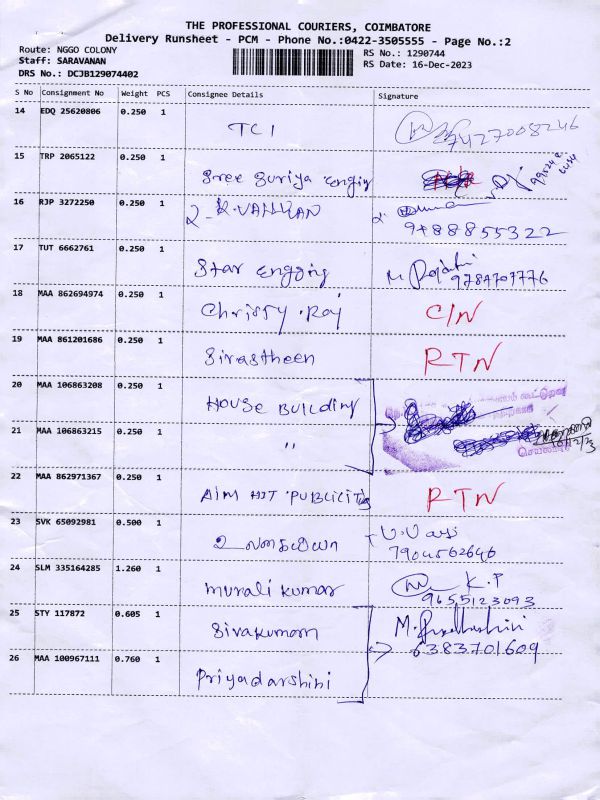 THE PROFESSIONAL COURIERS, COIMBATORE
Delivery Runsheet - PCM - Phone No.:0422-3505555 - Page No.:2
Route: NGGO COLONY
Staff: SARAVANAN
DRS No.: DCJB129074402
RS No.: 1290744
RS Date: 16-Dec-2023
S No Consignment No Weight PCS Consignee Details Signature
14 EDQ 25620806 0.250 1 TCI 7427008246
15 TRP 2065122 0.250 1 Sree Suriya Engig
16 RJP 3272250 0.250 1 2-K.VANNAN
9488855322
17 TUT 6662761 0.250 1 Star Engging M
9787707776
18 MAA 862694974 0.250 1 Chrissy.Raj C/N
19 MAA 861201686 0.250 1 Sirastheen RTN
20 MAA 106863208 0.250 1 HOUSE BUILDING
21 MAA 106863215 0.250 1 "
22 MAA 862971367 0.250 1 AIM HIT PUBLICITIS RTN
23 SVK 65092981 0.500 1
7904562646
24 SLM 335164285 1.260 1 Murali Kumar K.P
9655123093
25 STY 117872 0.605 1 Sivakumar M.
6383701609
26 MAA 100967111 0.760 1 Priyadarshini